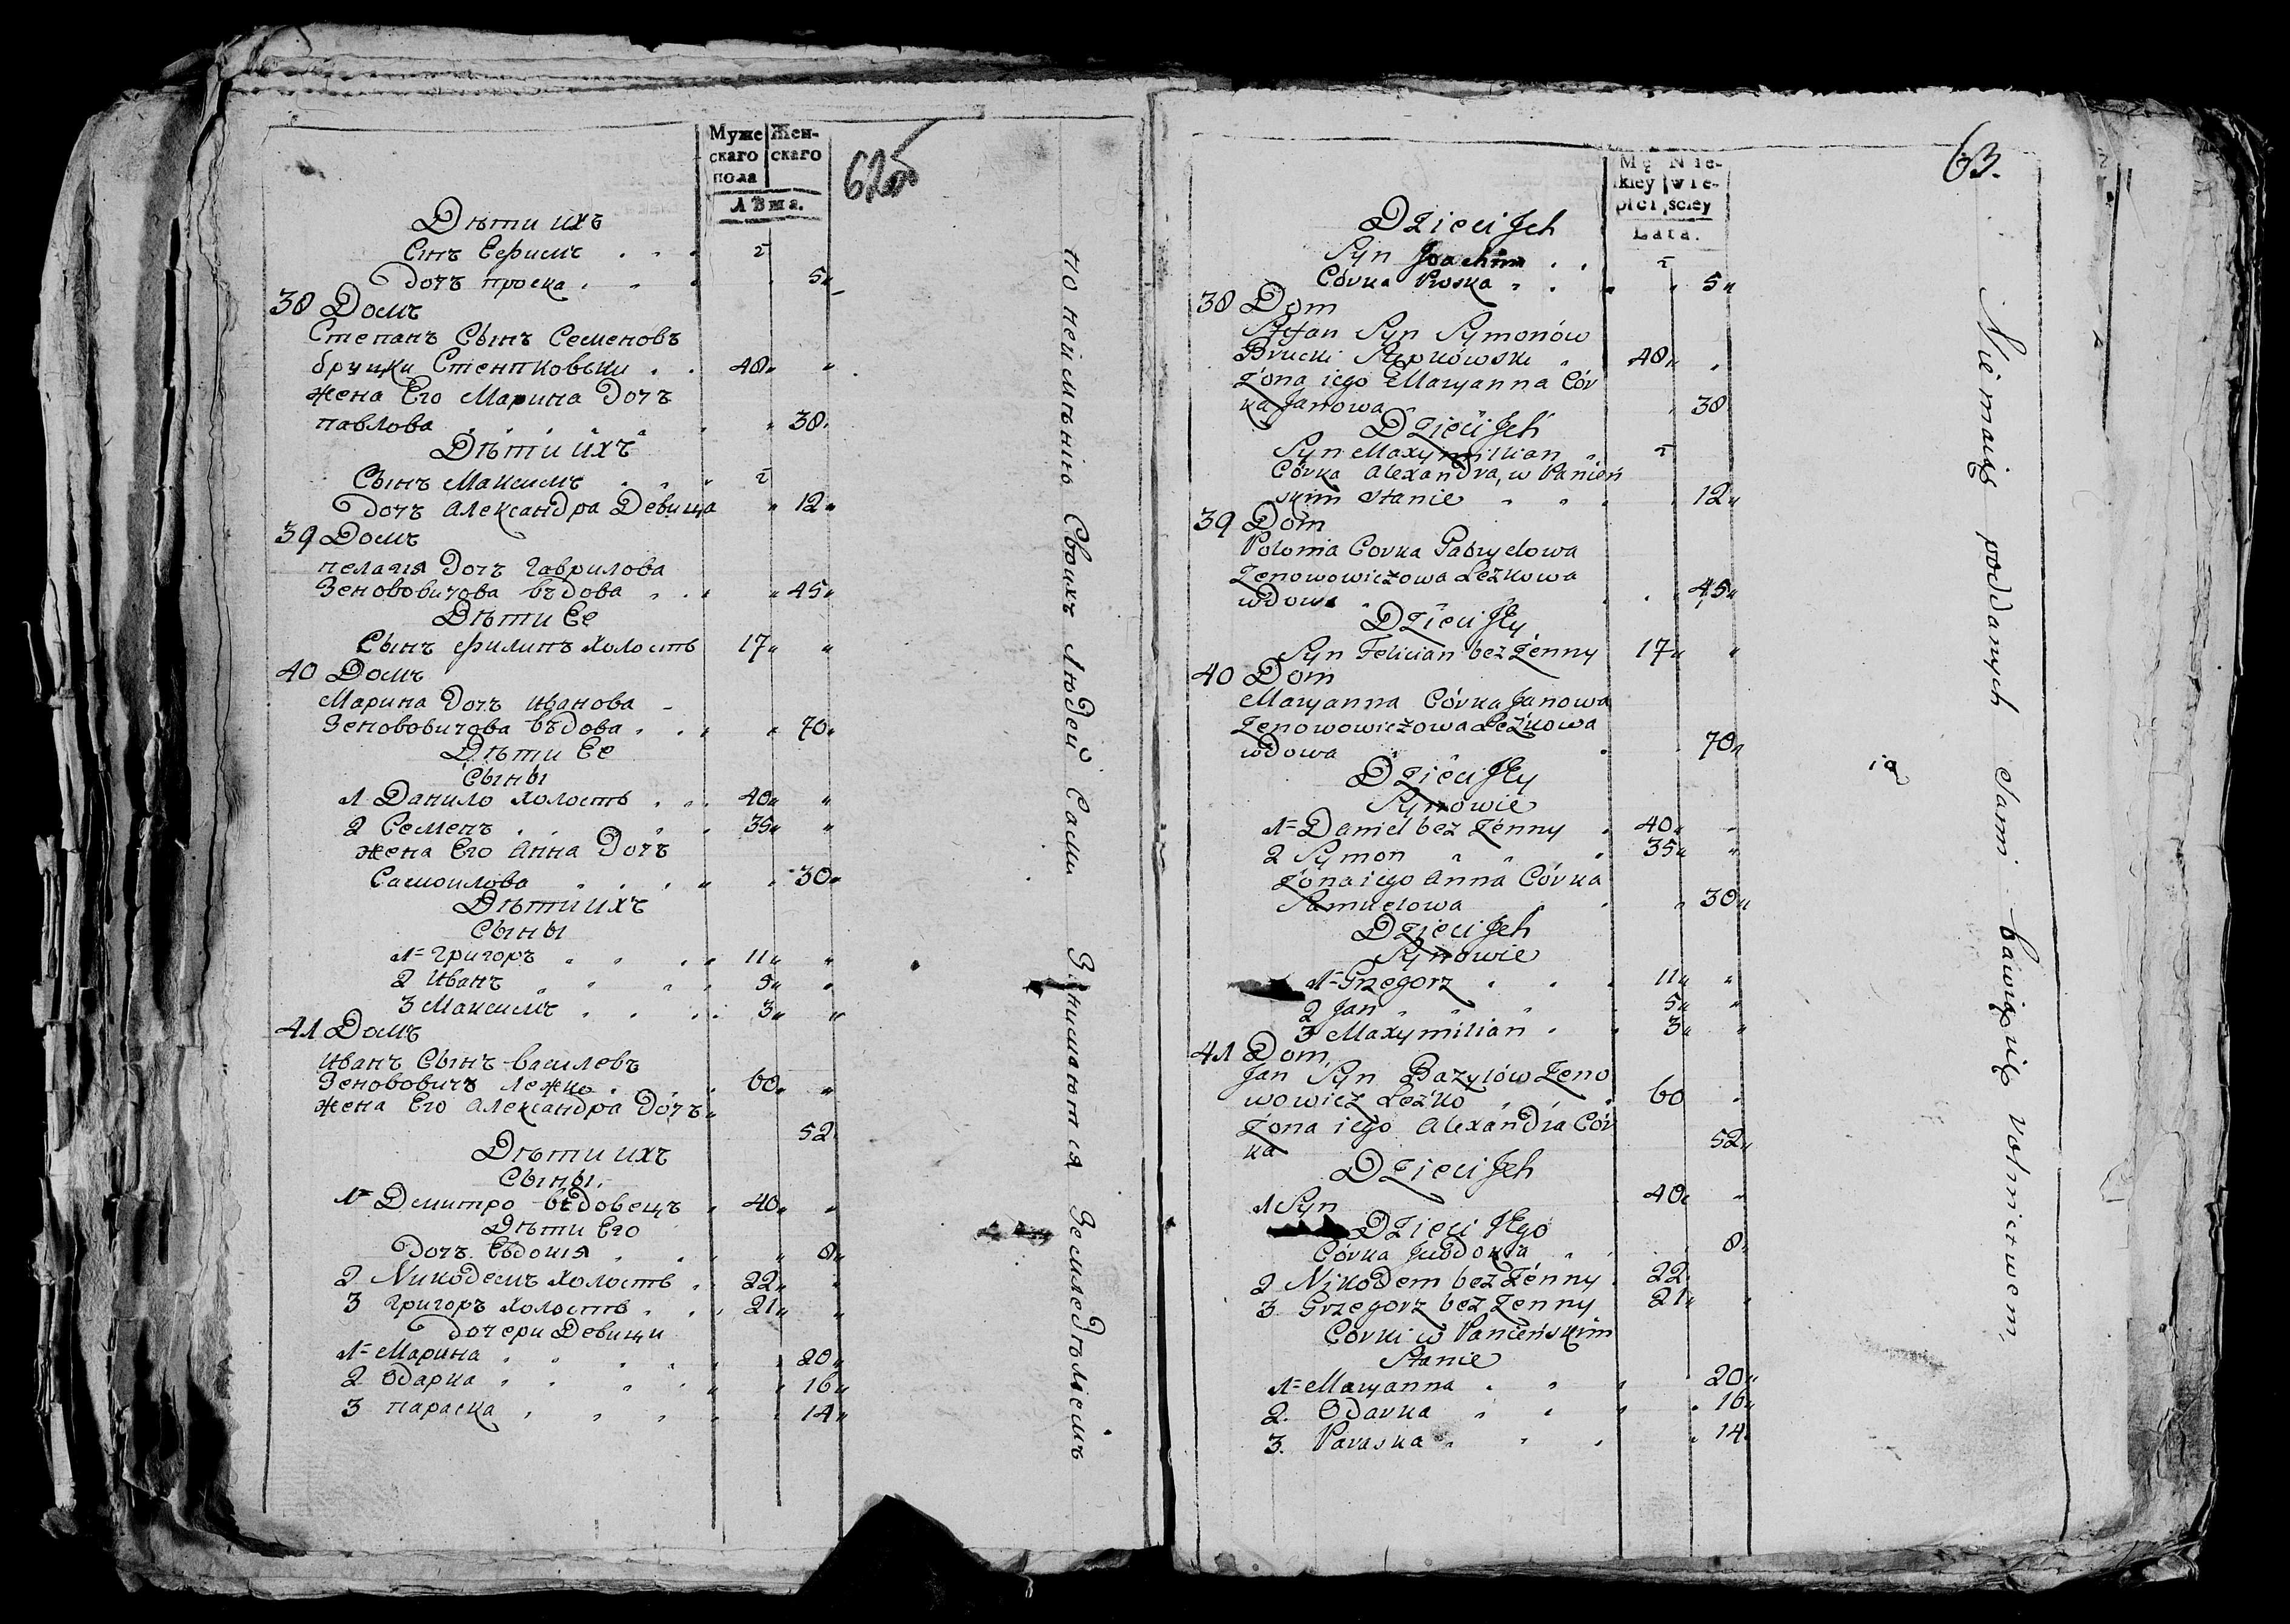 Муже Жен-
скаго скаго
пола
Лѣта.
62об
Дѣти ихъ
Сынъ Ефимъ
Дочъ проска 5
38 Домъ
Степанъ Сынъ Семеновъ
бруцки Стемпковски 48
жена Его Марина Дочъ
павлова 38
Дѣти ихъ
Сынъ Максимъ
Дочъ Александра Девица 12
39 Домъ
пелагия Дочъ Гаврилова
Зенововичова въдова 45
Дѣти Ее
Сынъ филипъ Холостъ 17
40 Домъ
Марина Дочъ иванова
Зенововичова въдова 70
Дѣти Ее
Сыны
1 Данило Холостъ 40
2 Семенъ 35
жена Его Анна Дочъ
Самоилова 30
Дѣти ихъ
Сыны
1 Григоръ 11
2 Иванъ 5
3 Максимъ 3
41 Домъ
иванъ Сынъ василевъ
Зенововичъ лежко 60
жена Его Александра Дочъ
52
Дѣти ихъ
Сыны
1 Дмитро въдовецъ 40
Дѣти Его
Дочъ Евдокия 8
2 Никодемъ Холостъ 22
3 Григоръ Холостъ 21
Дочери Девици
1 Марина 20
2 Одарка 16
3 параска 14
по неимѣнию Своихъ Людей Сами Занимаются Земледѣлиемъ
63.
Mę Nie-
kiey wie-
płci sciey
Lata.
Dzieci Jch
Syn Joachim
Córka Proska 5
38 Dom
Stefan Syn Symonów
Brucki Stępkówski 48
Zona iego Maryanna Cór
ka Janowa 38
Dzieci Jch
Syn Maxymilian
Córka Alexandra, w Panień
skim stanie 12
39 Dom
Polonia Corka Gabryelowa
Zenowowiczowa Leżkowa
wdowa 45
Dzieci Jey
Syn Felician bez Zenny 17
40 Dom
Maryanna Córka Janowa
Zenowowiczowa Leżkowa
wdowa 70
Dzieci Jey
Synowie
1 Daniel bez Zenny 40
2 Symon 35
Zona iego Anna Córka
Samuelowa 30
Dzieci Jch
Synowie
1 Grzegorz 11
2 Jan 5
3 Maxymilian 3
41 Dom
Jan Syn Bazylów Zeno
wowicz Leżko 60
Zona iego Alexandra Cór
ka 52
Dzieci Jch
1 Syn 40
Dzieci Jego
Córka Jewdokia 8
2 Nikodem bez Zenny 22
3 Grzegorz bez Zenny 21
Corki w Panieńskim
Stanie
1 Maryanna 20
2. Odarka 16
3. Paraska 14
Nie maią poddanych Sami bawią się rolnictwem